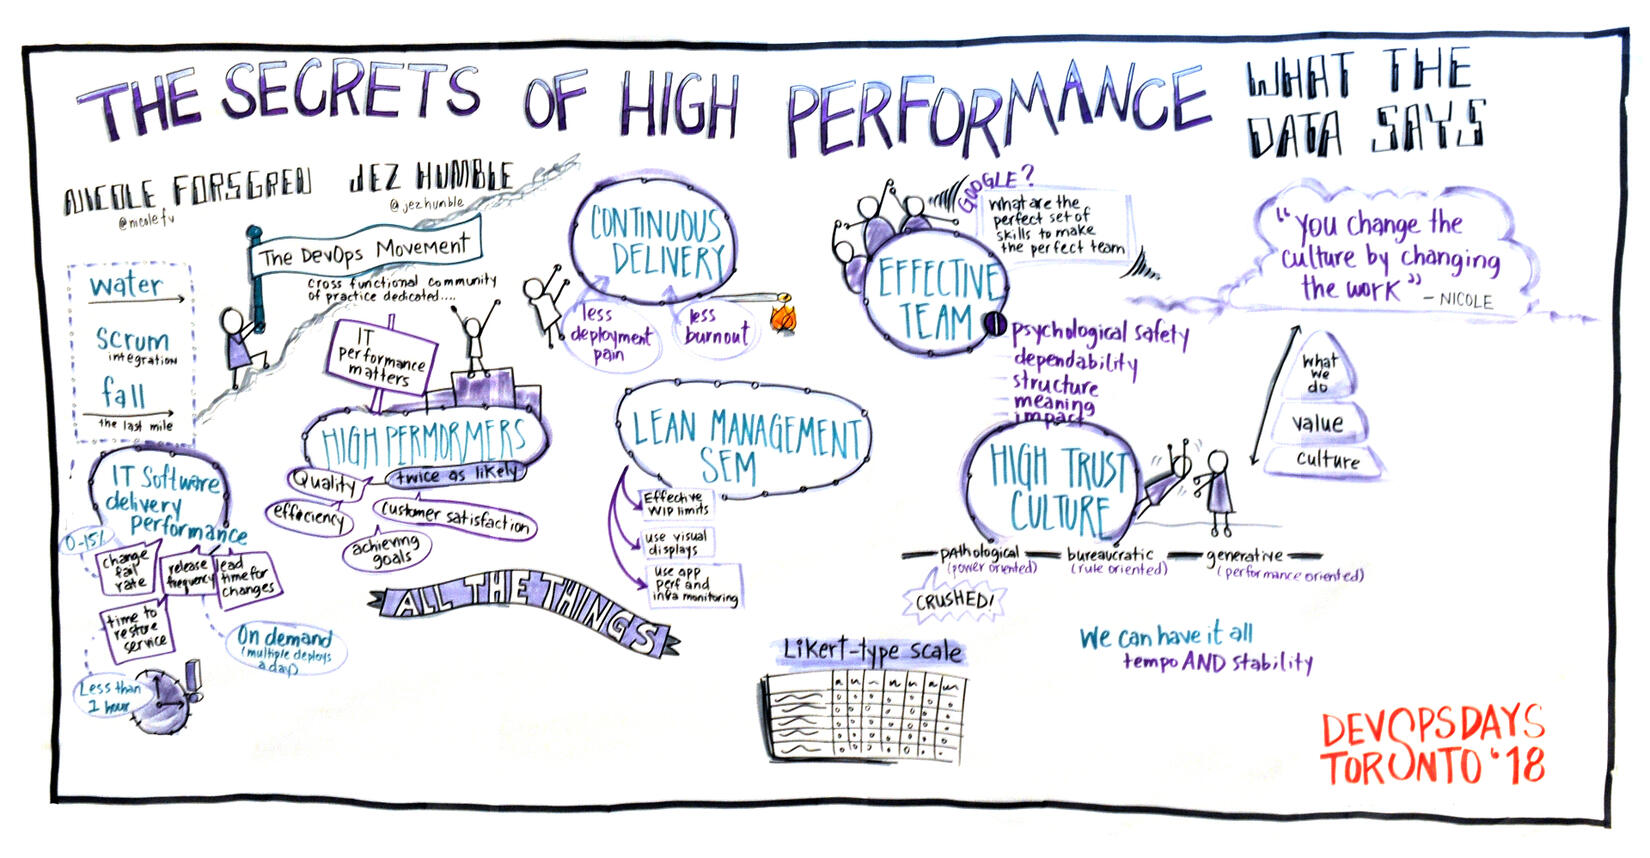 THE SECRETS OF HIGH PERFORMANCE
WHAT THE
DATA SAYS
NICOLE FORSGREN
@nicolefv
JEZ HUMBLE
@jezhumble
The DevOps Movement
cross functional community
of practice dedicated....
water
scrum
integration
fall
the last mile
IT Software
delivery
performance
0-15%
change
fail
rate
release
frequency
lead
time for
changes
time to
restore
service
On demand
(multiple deploys
a day)
Less than
1 hour
IT
performance
matters
HIGH PERMORMERS
Quality
twice as likely
effeciency
customer satisfaction
achieving
goals
ALL THE THINGS
CONTINUOUS
DELIVERY
less
deployment
pain
less
burnout
LEAN MANAGEMENT
SEM
Effective
WIP limits
use visual
displays
use app
perf and
infra monitoring
Likert-type scale
GOOGLE?
what are the
perfect set of
skills to make
the perfect team
EFFECTIVE
TEAM
1
psychological safety
dependability
structure
meaning
impact
HIGH TRUST
CULTURE
pathological
(power oriented)
bureaucratic
(rule oriented)
generative
(performance oriented)
CRUSHED!
We can have it all
tempo AND stability
"you change the
culture by changing
the work"
- NICOLE
what
we
do
value
culture
DEVOPSDAYS
TORONTO '18